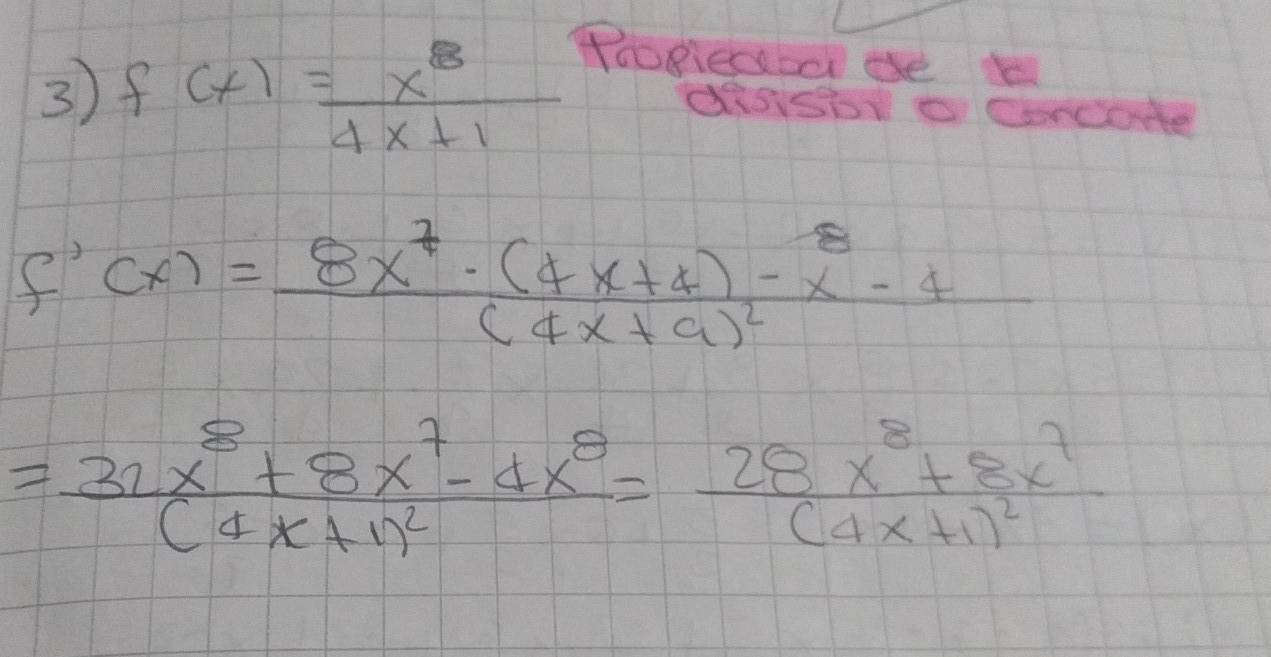 3) f(x) = x⁸ / 4x+1 Propiedad de la
división o cociente
f'(x) = 8x⁷ · (4x+4) - x⁸ - 4 / (4x+9)²
= 32x⁸ + 8x⁷ - 4x⁸ / (4x+1)² = 28x⁸ + 8x⁷ / (4x+1)²